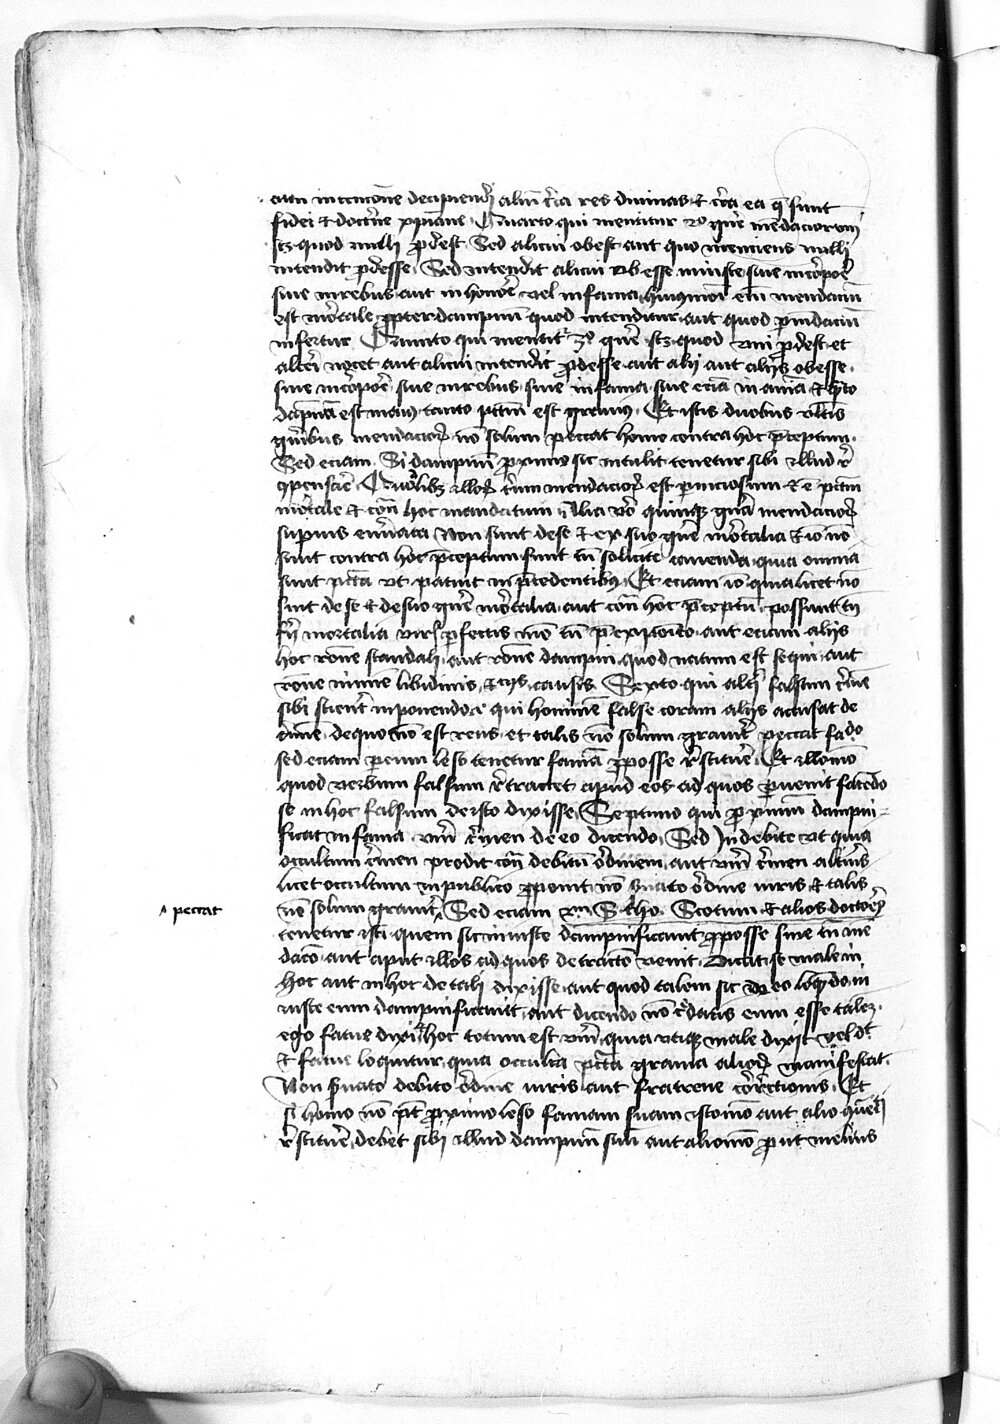 cum intencione decipiendi aliū circa res diuinas et circa ea que sunt
fidei et doctrine xp̄iane Quarto qui mentitur genere mendaciorum
scz quod nulli prodest Sed alicui obest aut quo menciens nulli
intendit prodesse Sed intendit alicui obesse iniuste siue in corpore
siue in rebus aut in honore vel in fama huiusmodi enim mendacium
est mortale propter dampnum quod intenditur aut quod per mendacium
infertur Quinto qui mentitur genere scz quod vni prodest et
alteri nocet aut alicui intendit prodesse aut alij aut alijs obesse
siue in corpore siue in rebus siue in fama siue eciam in anima et quanto
dapnum est maius tanto pctm̄ est grauius Et istis duobus vltimis
generibus mendaciorum non solum peccat homo contra hoc preceptum
Sed eciam Si dampnum proximo sic intulit tenetur sibi illud
Quodlibet illorum trium mendaciorum est perniciosum et pctm̄
mortale et contra hoc mandatum Alia vero quinque genera mendaciorum
superius Non sunt de se et ex suo genere mortalia et ideo non
sunt contra hoc preceptum sunt tamen solicite cauenda quia omnia
sunt pctā vt patuit in precedentibus Et eciam ideo quia licet non
sint de se et de suo genere mortalia aut contra hoc preceptum possunt tamen
fieri mortalia viris perfectis aut eciam alijs
hoc racione scandali aut racione dampni quod natum est sequi aut
racione nimie libidinis causis Sexto qui alteri falsum crimen
sibi scienter inponendo qui hominem false coram alijs accusat de
crimine de quo non est reus et talis non solum grauiter peccat
sed eciam leso tenetur famam pro posse restituere Et
quod verbum falsum retractet apud eos ad quos peruenit
se in hoc falsum de isto dixisse Septimo qui proximum dampni-
ficat in fama verum crimen de eo dicendo Sed Indebite vt quia
occultum crimen prodit contra debitum ordinem aut verum crimen alterius
licet occultum in publico proponit non seruato ordine iuris et talis
non solum grauiter ^ Sed eciam S tho Scotum et alios doctores
^ peccat
tenetur isti quem sic iniuste dampnificauit pro posse sine tamen
aut aput illos ad quos detractio venit Dicat se male in
hoc aut in hoc de tali dixisse aut quod talem sic de eo loquendo in
iuste eum dampnificauit aut dicendo non credatis eum esse talem
ego fatue dixi hoc totum est verum quia vtique male dixit vel
et fatue loquitur quia occulta pctā grauia aliorum manifestat
Non seruato debito ordine iuris aut fraterne correctionis Et
si homo non potest proximo leso famam suam isto modo aut alio
restituere debet sibi illud dampnum simili aut alio modo prout melius